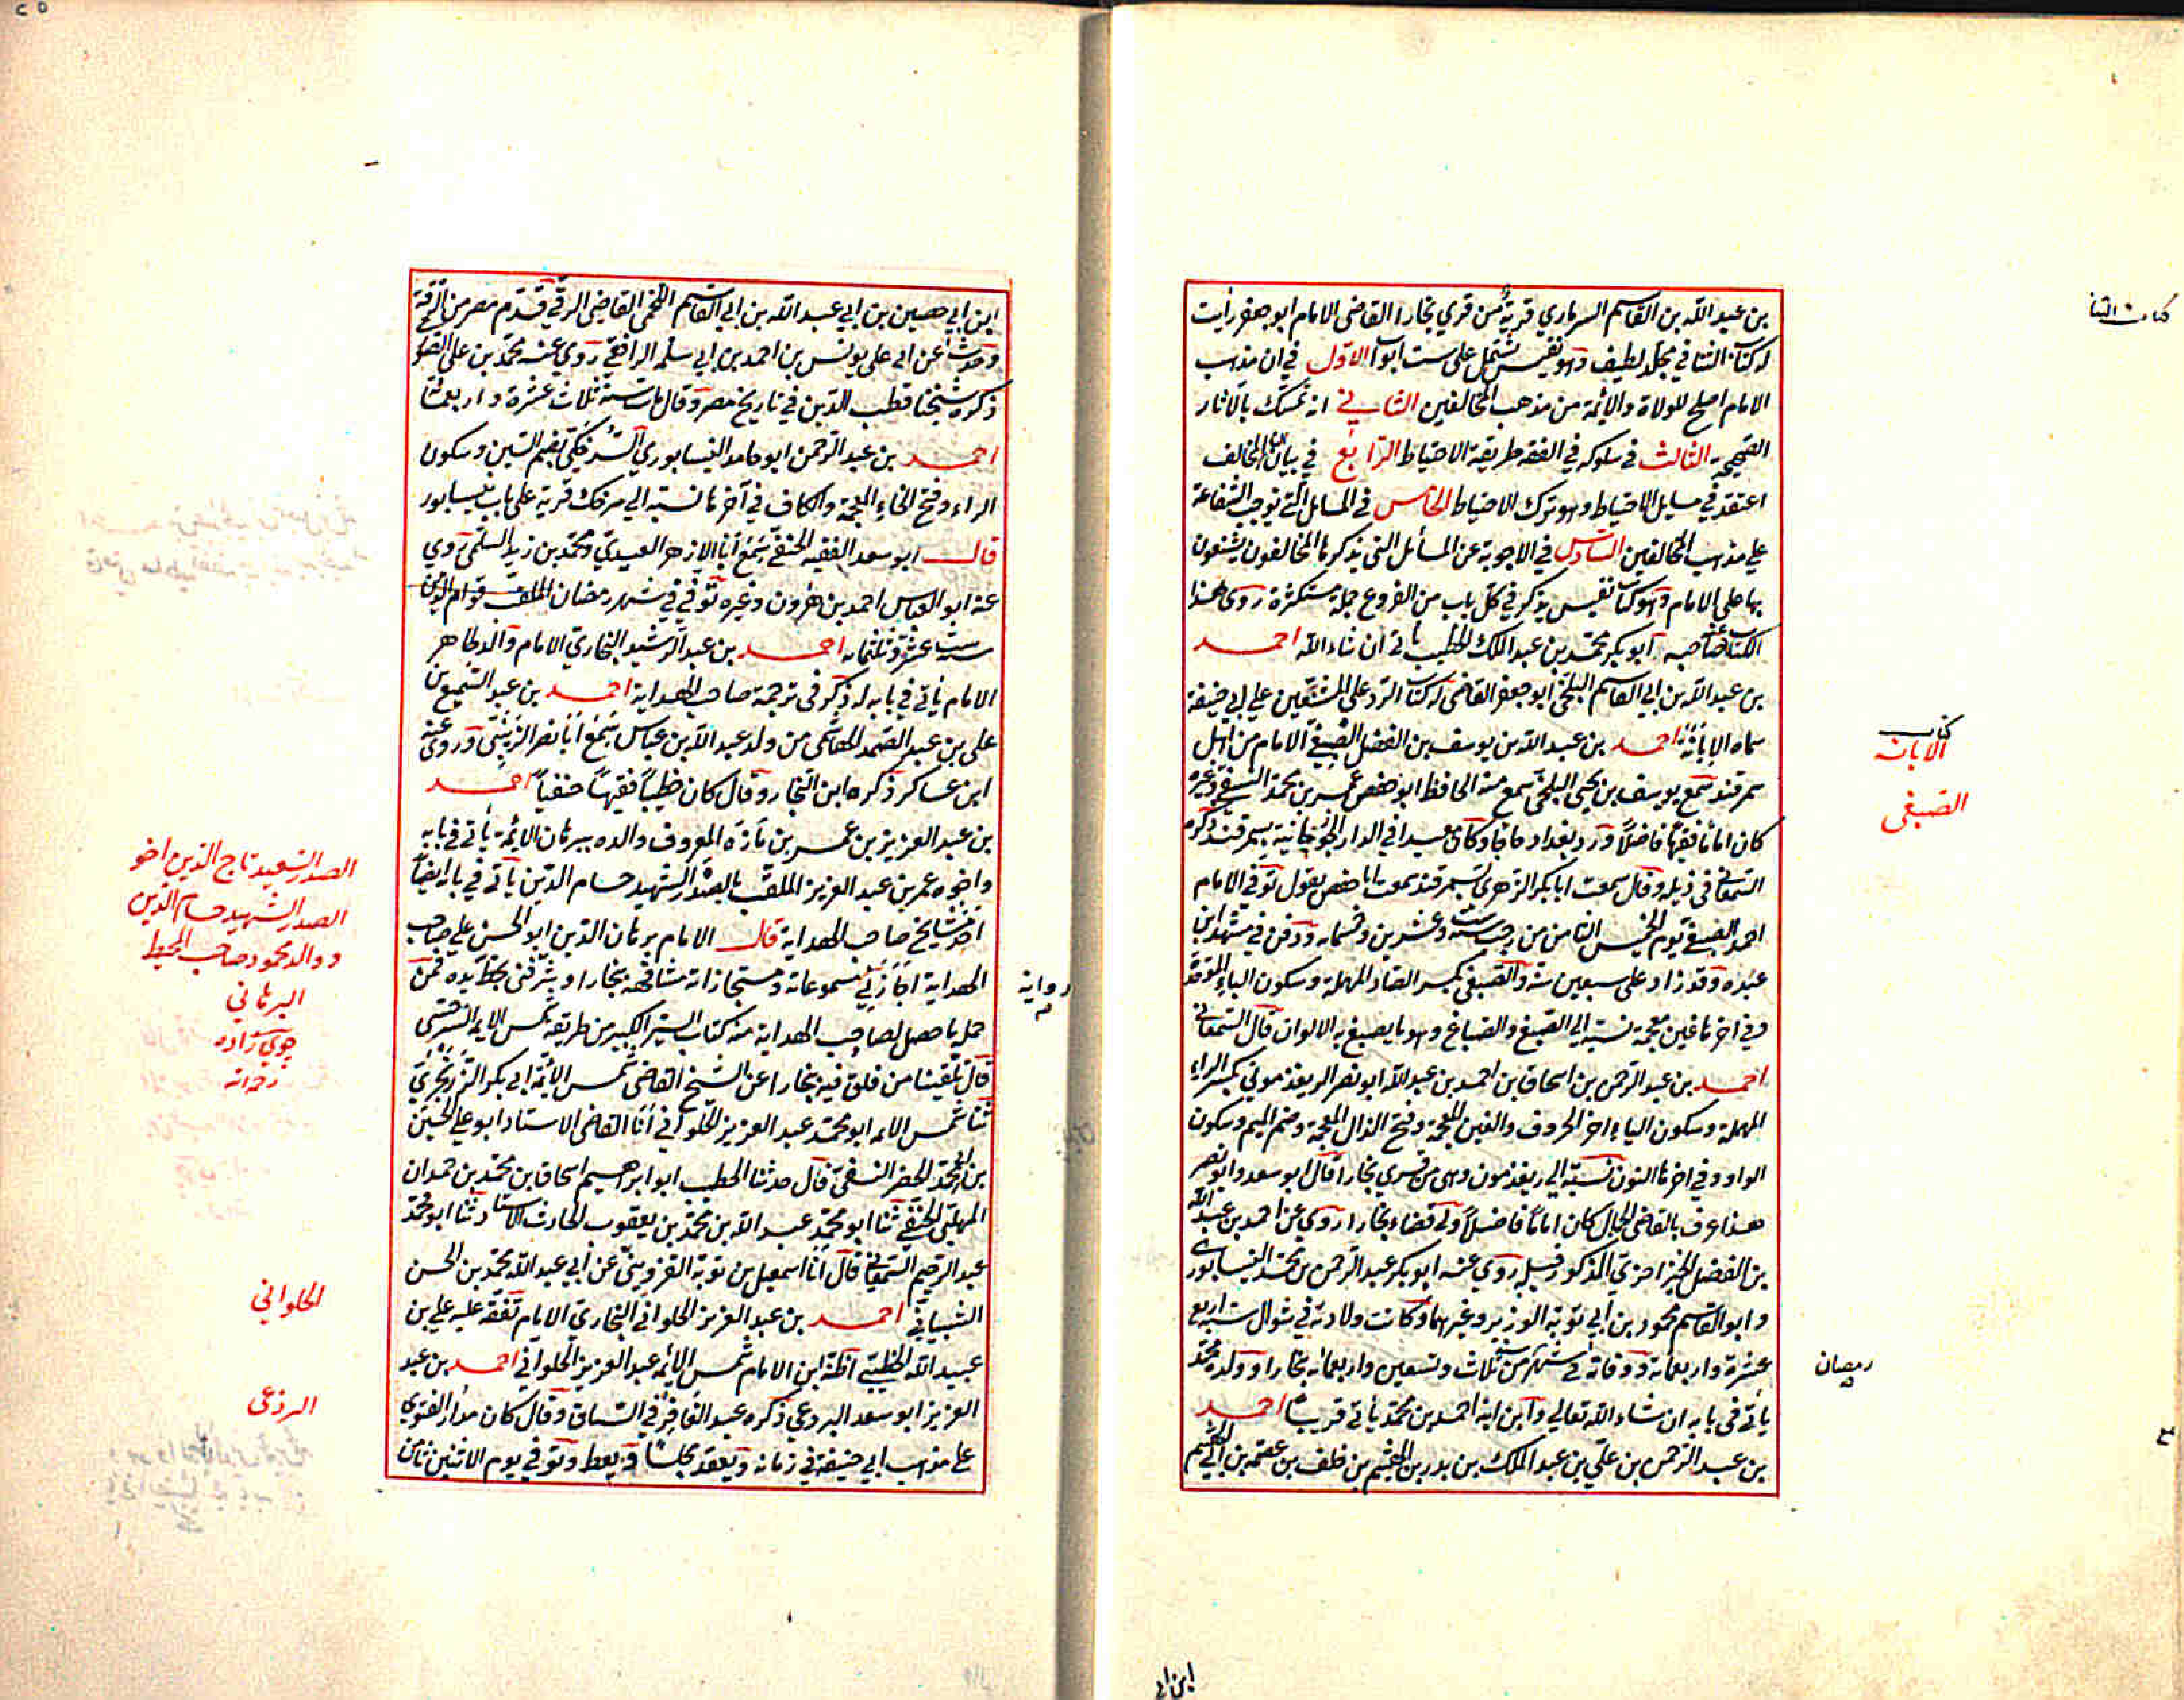 بن عبد الله بن القاسم السرماري قرية من قري بخارا القاضي الامام ابو جعفر رأيت
له كتاب الثنا في مجلد لطيف وهو نفيس يشتمل على ست ابواب الاول في ان مذهب
الامام اصلح للولاة والائمة من مذهب المخالفين الثاني انه تمسك بالآثار
الصحيحة الثالث في سلوكه في الفقه طريقة الاحتياط الرابع في بيان ان المخالف
اعتقد في مسايل الاحتياط وهو ترك الاحتياط الخامس في المسايل التي توجب الشفاعة
علي مذهب المخالفين السادس في الاجوبة عن المسائل التي يذكرها المخالفون يشنعون
بها على الامام وهو كتاب نفيس يذكر في كل باب من الفروع جملة مستكثرة روي هذا
الكتاب عن صاحبه ابو بكر محمد بن عبد الملك الخطيب يأتي ان شاء الله احمد
بن عبد الله بن ابي القاسم البلخي ابو جعفر القاضي له كتاب الرد على المشنعين علي ابي حنيفة
سماه الابانة احمد بن عبد الله بن يوسف بن الفضل الصبغي الامام من اهل
سمرقند سمع يوسف بن يحيى البلخي سمع منه الحافظ ابو حفص عمر بن محمد النسفي وغيره
كان اماما فقيها فاضلا ورد بغداد حاجا وكان معيدا في الدار الجوزجانية بسمرقند ذكره
السمعاني في ذيله وقال سمعت ابا بكر الزهري بسمرقند سمعت ابا حفص يقول توفي الامام
احمد الصبغي يوم الخميس الثامن من رجب سنة ست وعشرين وخمسمايه ودفن في مشهد ابن
عبده وقد زاد على سبعين سنة والصبغي بكسر الصاد المهملة وسكون الباء الموحدة
وفي اخرها غين معجمة نسبة الي الصبغ والصباغ وهو ما يصبغ به الالوان قال السمعاني
احمد بن عبد الرحمن بن اسحاق بن احمد بن عبد الله ابو نصر الريغذموني بكسر الراء
المهملة وسكون الياء اخر الحروف والغين المعجمة وفتح الذال المعجمة وضم الميم وسكون
الواو وفي اخرها النون نسبة الي ريغذمون وهي من قري بخارا قال ابو سعد وابو نصر
هذا عرف بالقاضي الجمال كان اماما فاضلا ولي قضاء بخارا روي عن احمد بن عبد الله
بن الفضل الخيزاخزي المذكور قبل روي عنه ابو بكر عبد الرحمن بن محمد النيسابوري
وابو القاسم محمود بن ابي توبة الوزير وغيرهما وكانت ولادته في شوال سنة اربع
عشرة واربعمائة ووفاته في شهر من سنة ثلاث وتسعين واربعمائة بخارا وولده محمد
يأتي في بابه ان شاء الله تعالي وابن ابنه احمد بن محمد يأتي قريبا احمد
بن عبد الرحمن بن علي بن عبد الملك بن بدر بن الهيثم بن خلف بن عصمة بن ابي الهيثم
كتاب الثنا
كتاب
الابانه
الصبغي
رمضان
ابن ابي
ابن ابي حصين بن ابي عبد الله بن ابي القاسم اللخمي القاضي الرقي قدم مصر من الرقة
وحدث عن ابي علي يونس بن احمد بن ابي سلمه الرافقي روي عنه محمد بن علي الصوري
ذكره شيخنا قطب الدين في تاريخ مصر وقال مات سنة ثلاث عشرة واربعمائة
احمد بن عبد الرحمن ابو حامد النيسابوري السرخكي بضم السين وسكون
الراء وفتح الخاء المعجمة والكاف في آخرها نسبة الي سرخك قرية على باب نيسابور
قال ابو سعد الفقيه الحنفي سمع ابا الازهر العبدي ومحمد بن زيد السلمي روي
عنه ابو العباس احمد بن هرون وغيره توفي في شهر رمضان الملقب قوام الدين
سنة ست عشرة وثلثمايه احمد بن عبد الرشيد البخاري الامام والد طاهر
الامام يأتي في بابه له ذكر في ترجمة صاحب الهداية احمد بن عبد السميع بن
علي بن عبد الصمد الهاشمي من ولد عبد الله بن عباس سمع ابا نصر الزينبي وروي عنه
ابن عساكر ذكره ابن النجار وقال كان خطيبا فقيها حنفيا احمد
بن عبد العزيز بن عمر بن مازه المعروف والده ببرهان الائمة يأتي في بابه
واخوه عمر بن عبد العزيز الملقب بالصدر الشهيد حسام الدين يأتي في بابه ايضا
احد مشايخ صاحب الهداية قال الامام برهان الدين ابو الحسن علي صاحب
الهداية اجاز لي مسموعاته ومستجازاته مشافهة بخارا وشرفني بخط يده فمن
جمله ما حصل لصاحب الهداية منه كتاب السير الكبير من طريقة شمس الايمة السرخسي
قال تلقينا من فلق فيه بخارا عن الشيخ القاضي شمس الائمة ابي بكر الزرنجري
ثنا شمس الايمه ابو محمد عبد العزيز الحلواني أنا القاضي الاستاد ابو علي الحسين
بن محمد الخضر النسفي قال حدثنا الخطيب ابو ابراهيم اسحاق بن محمد بن حمدان
المهلبي الحنفي ثنا ابو محمد عبد الله بن محمد بن يعقوب الحارث الاستاد ثنا ابو محمد
عبد الرحيم السمعاني قال أنا اسمعيل بن توبة القزويني عن ابي عبد الله محمد بن الحسن
الشيباني احمد بن عبد العزيز الحلواني البخاري الامام تفقه عليه علي بن
عبيد الله الخطيبي اظنه ابن الامام شمس الايمه عبد العزيز الحلواني احمد بن عبد
العزيز ابو سعد البردعي ذكره عبد الغافر في السياق وقال كان مدار الفتوي
علي مذهب ابي حنيفة في زمانه ويعقد مجلسا ويعظ وتوفي يوم الاثنين ثامن
رواية
الصدر السعيد تاج الدين اخو
الصدر الشهيد حسام الدين
ووالد محمود صاحب المحيط
البرهاني
جوي زاده
الحلواني
البردعي